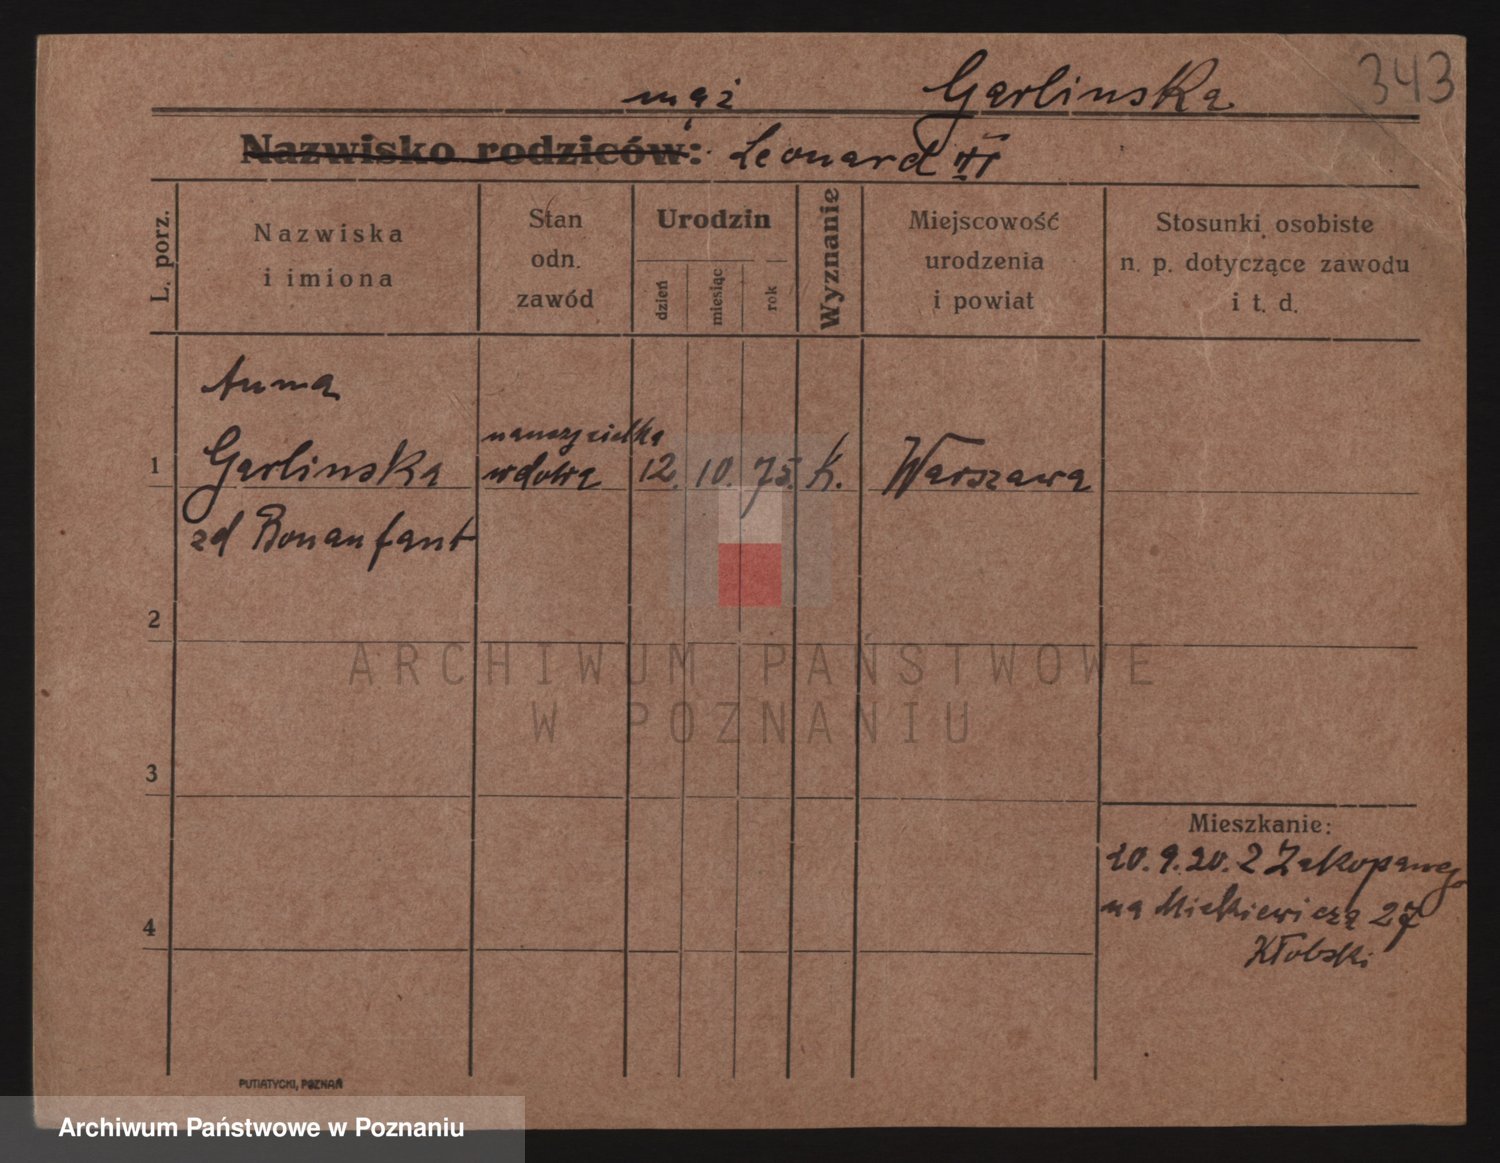 mąż Garlinska 343
Nazwisko rodziców: Leonard
L. porz.
Nazwiska
i imiona
Stan
odn.
zawód
Urodzin
dzień
miesiąc
rok
Wyznanie
Miejscowość
urodzenia
i powiat
Stosunki osobiste
n. p. dotyczące zawodu
i t. d.
Anna
nauczycielka
1 Garlinska wdowa 12. 10. 75. K. Warszawa
zd Bonanfant
2
ARCHIWUM PAŃSTWOWE
W POZNANIU
3
Mieszkanie:
20.9.20. Z Zakopanego
na Mickiewicza 27
4
Kłobski
PUTIATYCKI, POZNAŃ
Archiwum Państwowe w Poznaniu